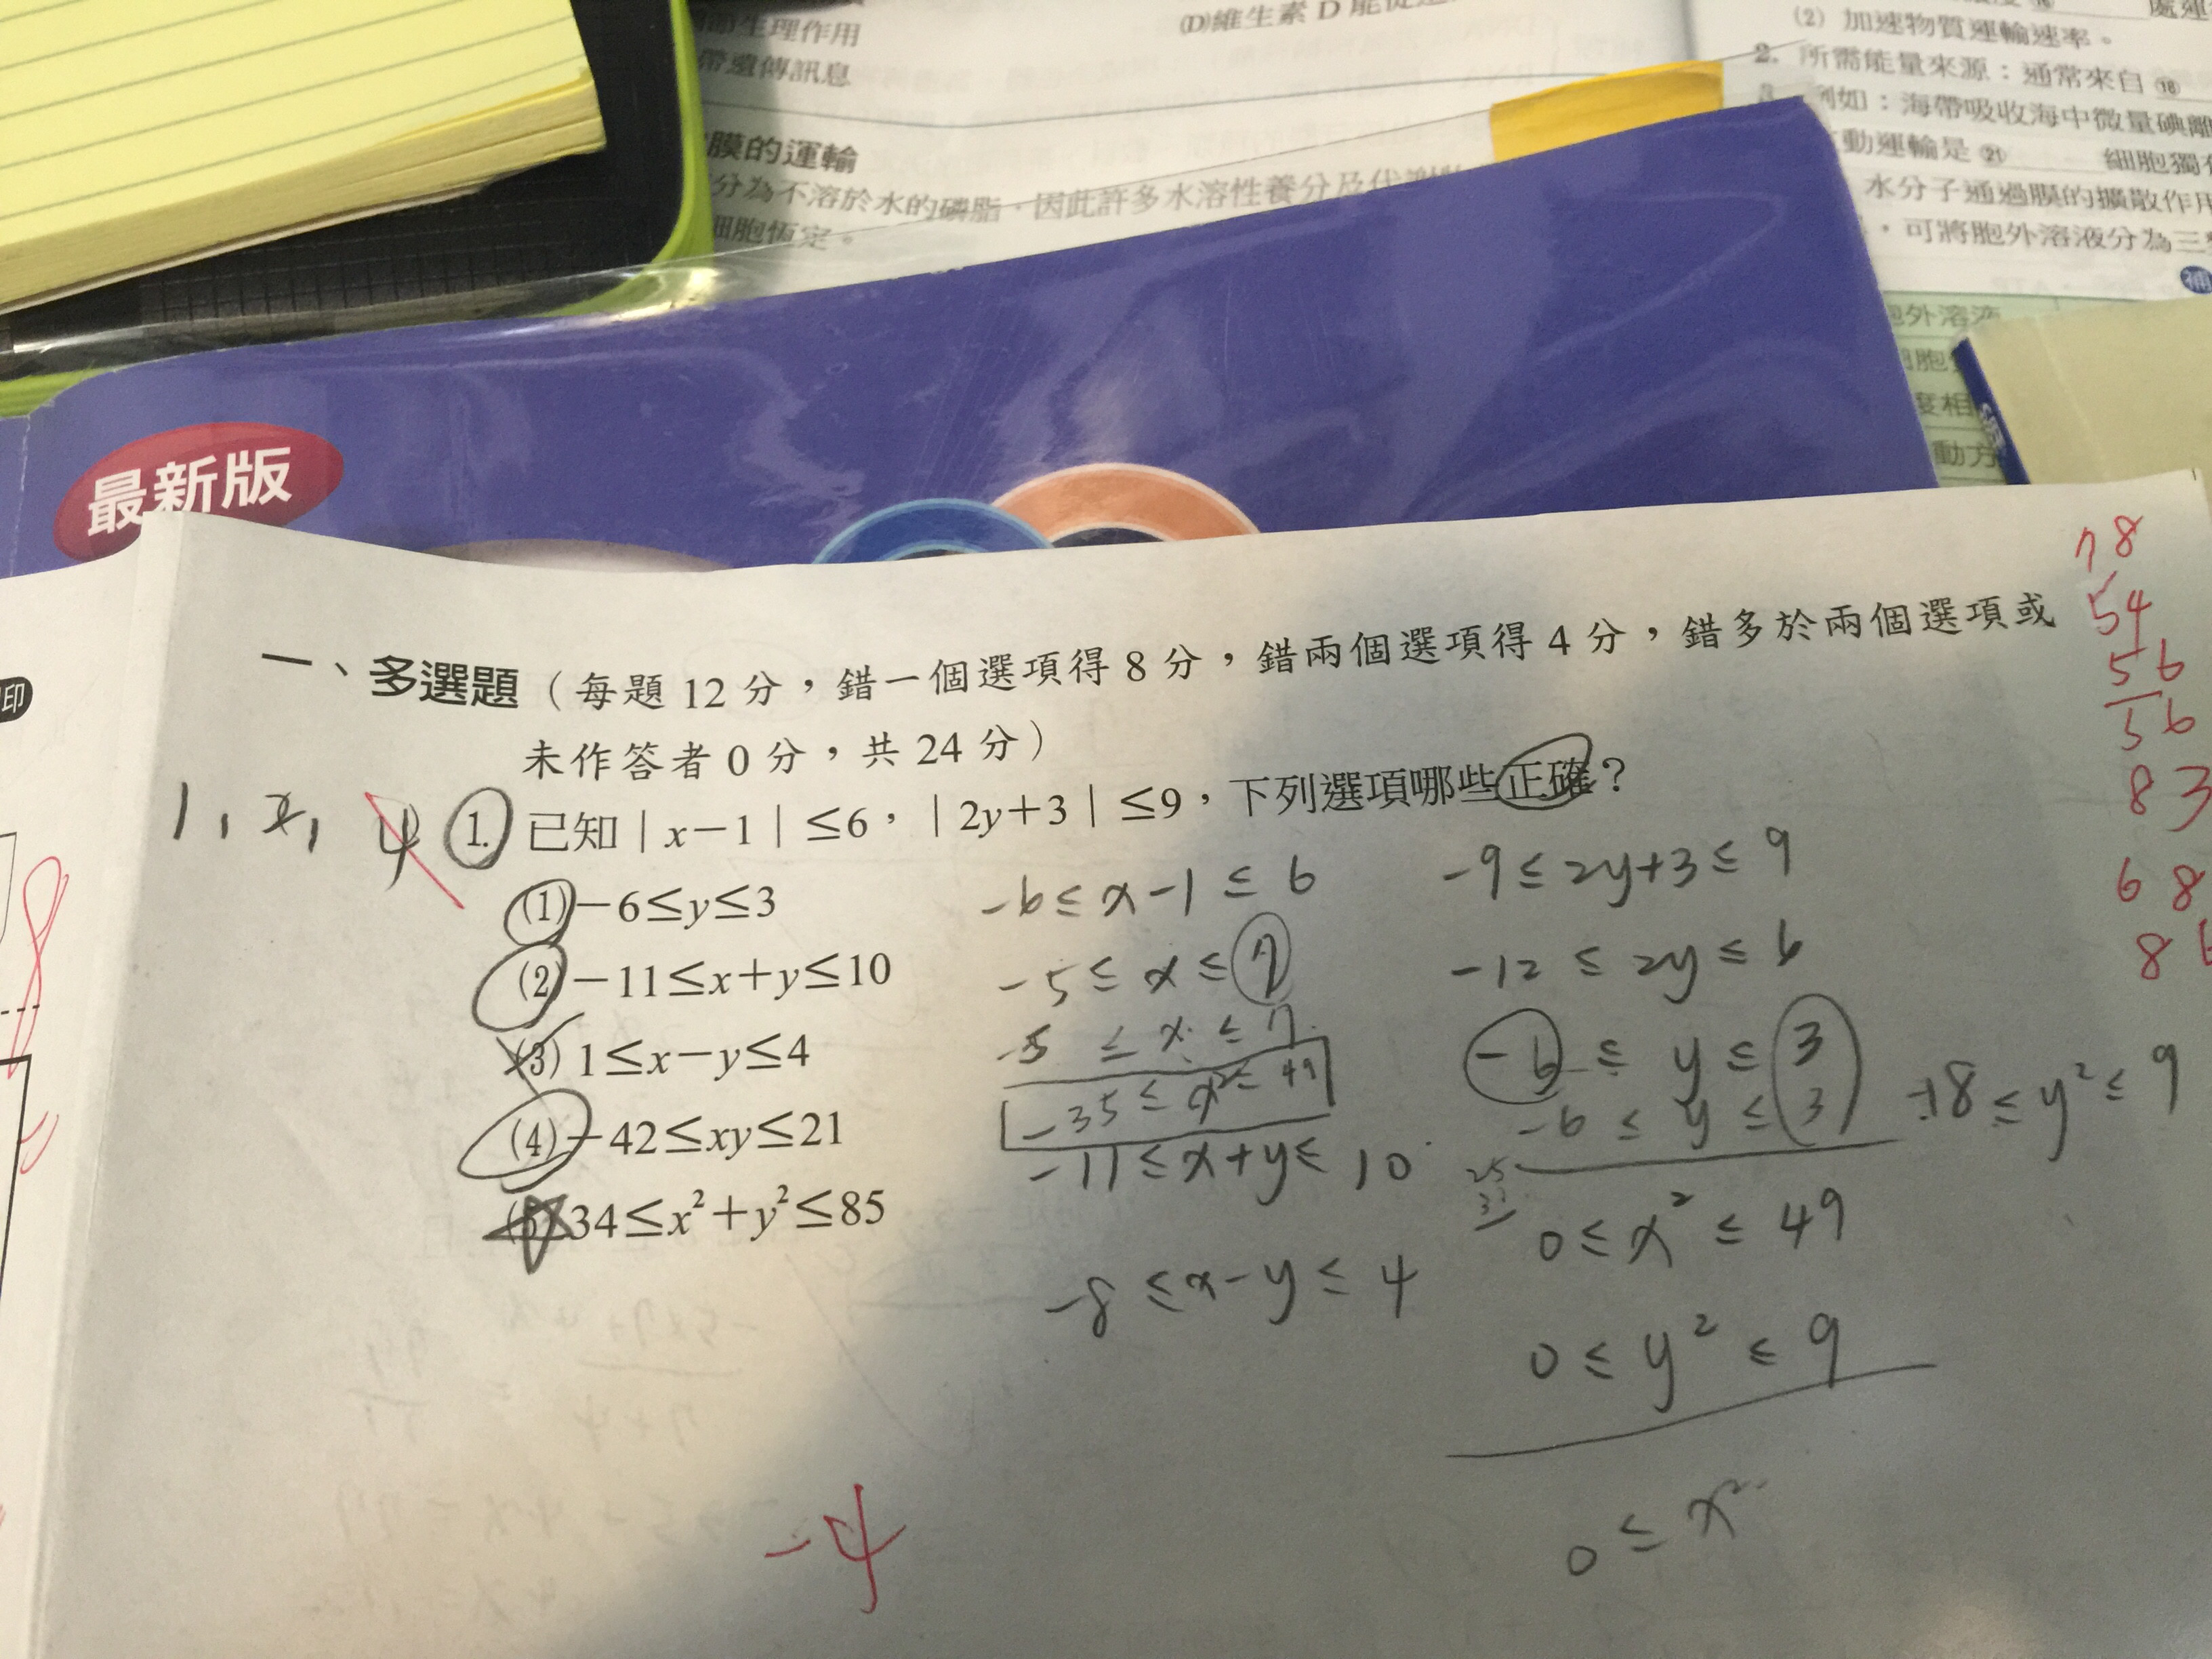 生理作用
帶遺傳訊息
(D)維生素 D
膜的運輸
分為不溶於水的磷脂,因此許多水溶性養分及代謝
細胞恆定。
(2) 加速物質運輸速率。
2. 所需能量來源:通常來自⑱
例如:海帶吸收海中微量碘離
動運輸是㉑ 細胞獨有
水分子通過膜的擴散作用
,可將胞外溶液分為三
補
胞外溶液
細胞
度相
動方
最新版
印
一、多選題(每題 12 分,錯一個選項得 8 分,錯兩個選項得 4 分,錯多於兩個選項或
未作答者 0 分,共 24 分)
1, 2, 4
1. 已知|x-1|≤6,|2y+3|≤9,下列選項哪些正確?
(1) -6≤y≤3
(2) -11≤x+y≤10
(3) 1≤x-y≤4
(4) -42≤xy≤21
(5) 34≤x²+y²≤85
-6≤x-1≤6
-5≤x≤7
-5≤x≤7
-35≤x²≤49
-11≤x+y≤10
-8≤x-y≤4
-9≤2y+3≤9
-12≤2y≤6
-6≤y≤3
-6≤y≤3
-18≤y²≤9
25
0≤x²≤49
0≤y²≤9
0≤x²
-4
78
54
56
56
83
68
8